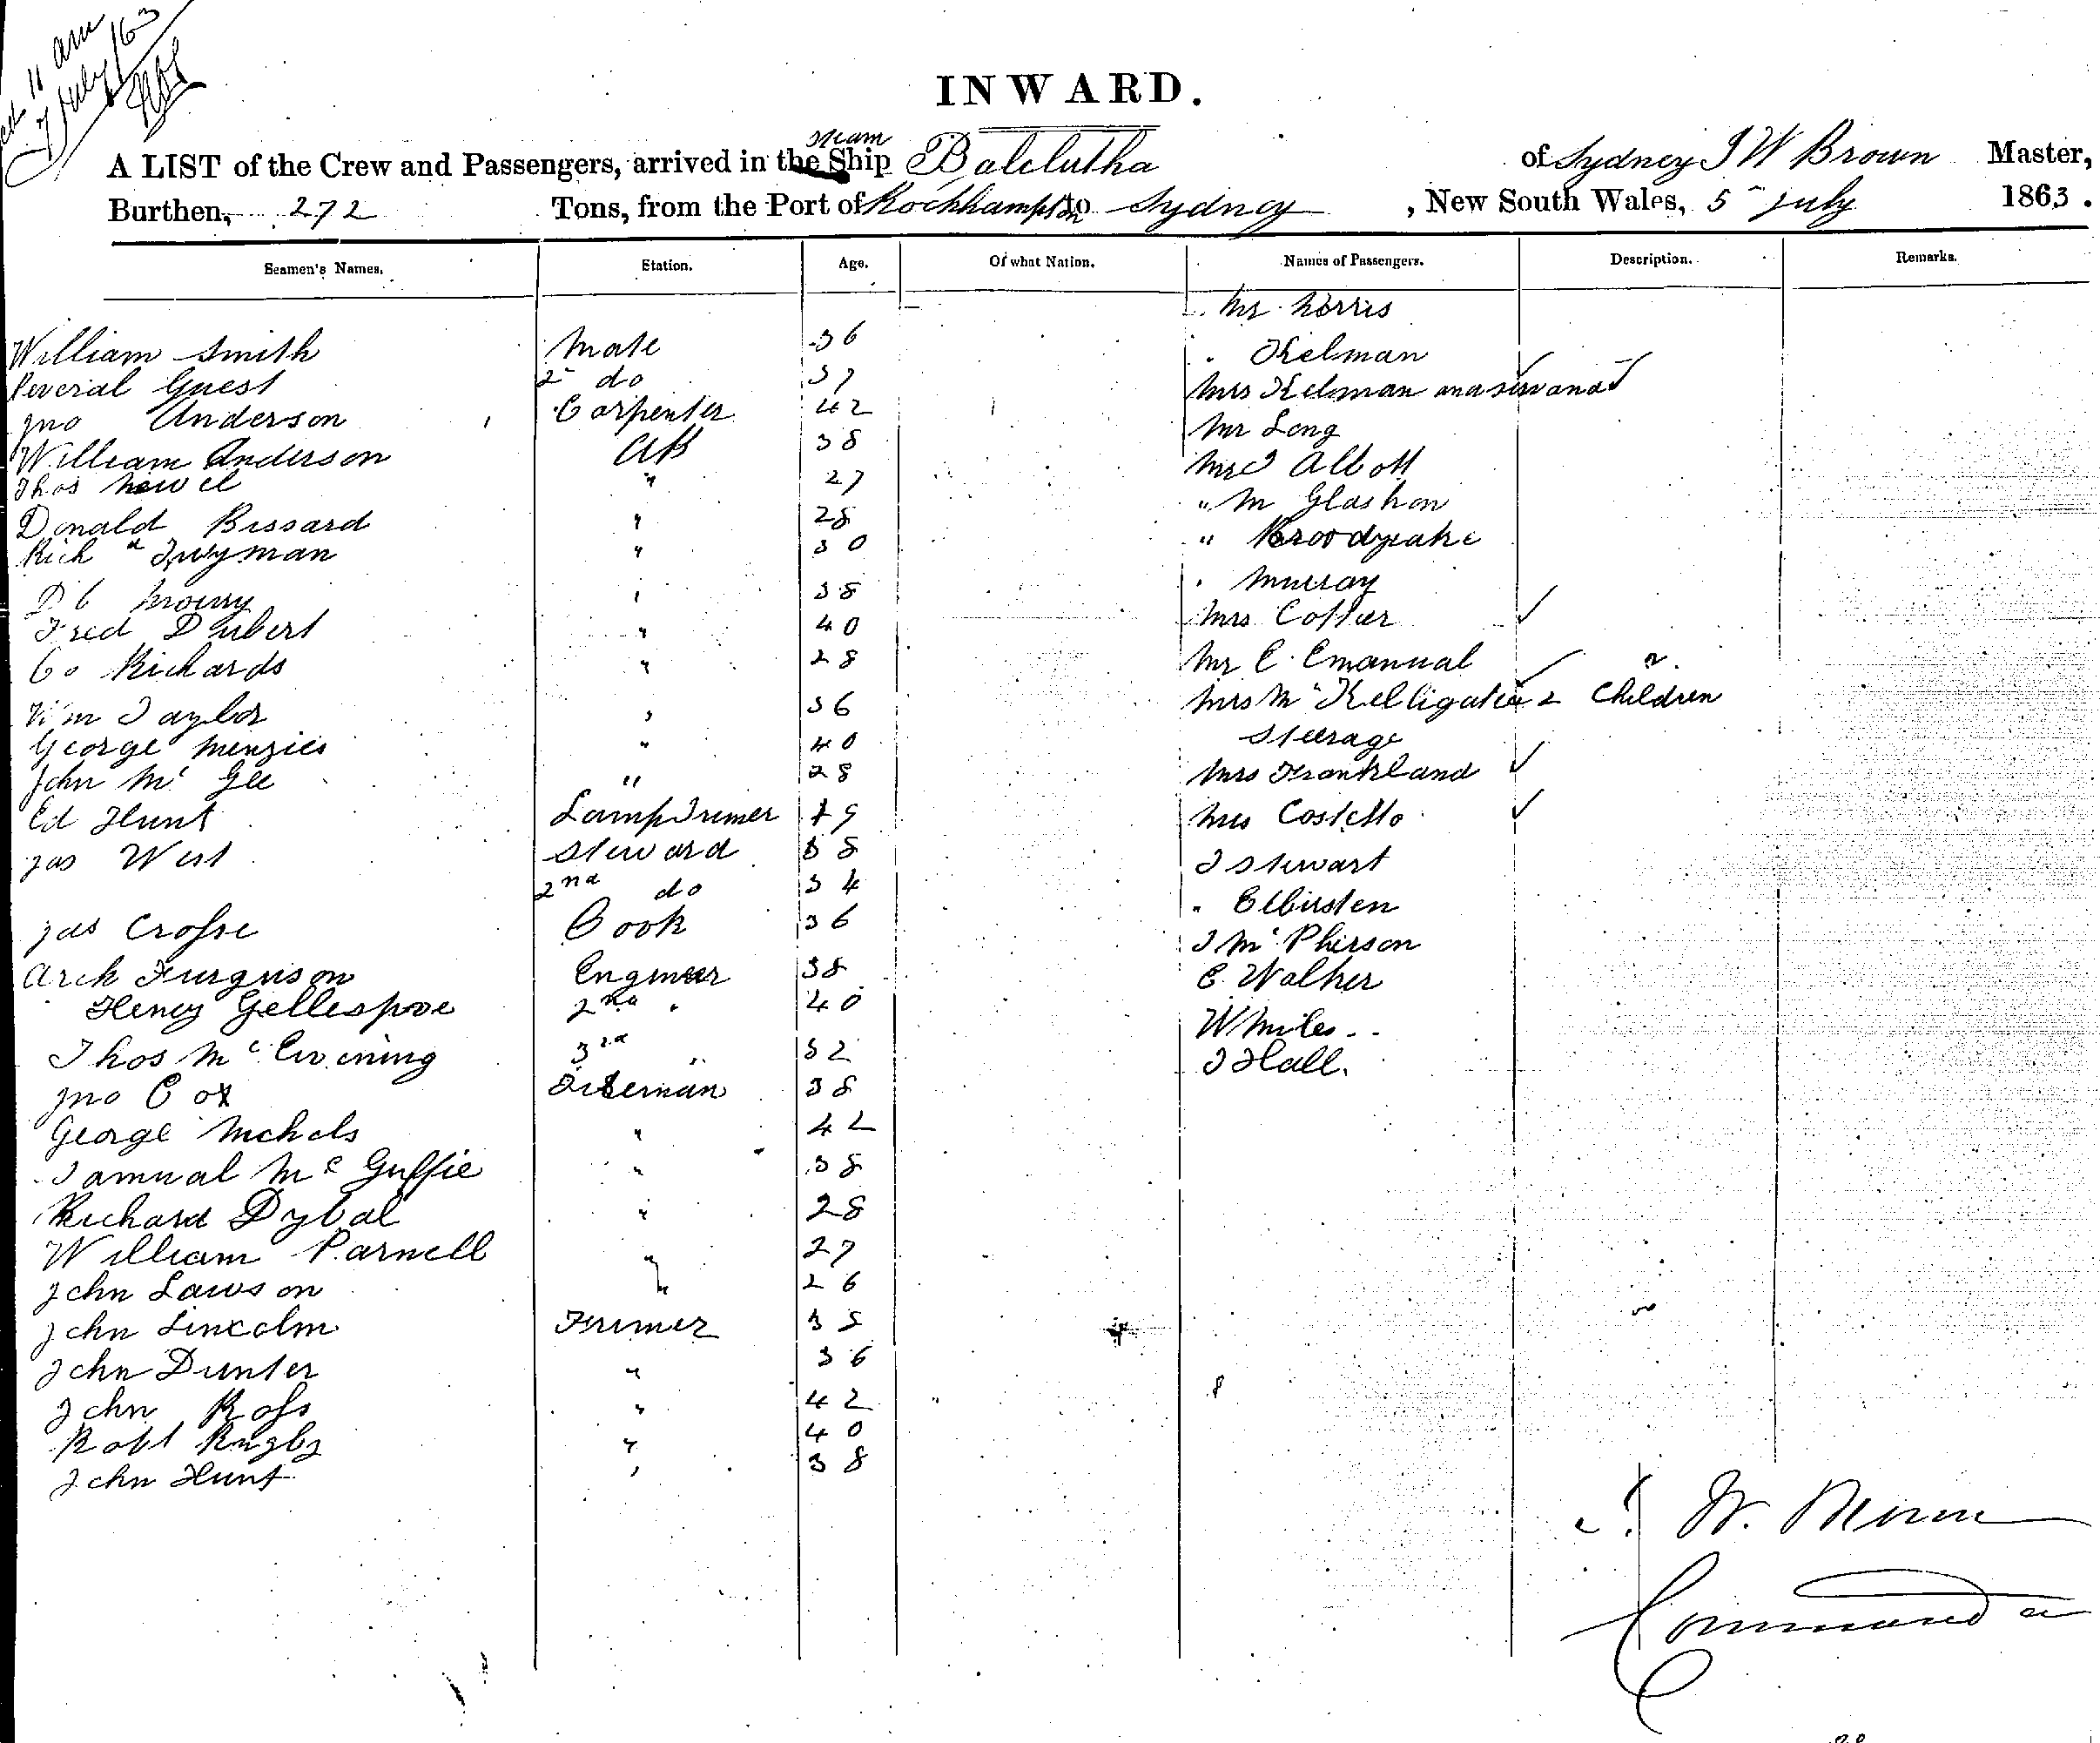 11 am
7 July /63
INWARD.
A LIST of the Crew and Passengers, arrived in the steam Ship Balclutha of Sydney J W Brown Master,
Burthen, 272 Tons, from the Port of Rockhampton to Sydney, New South Wales, 5 July 1863.
Seamen's Names. Station. Age. Of what Nation. Names of Passengers. Description. Remarks.
Mr Norris
William Smith Mate 36 " Kelman
Peveral Guest 2 do 37 Mrs Kelman and servand
Jno Anderson Carpenter 42 Mr Long
William Anderson AB 38 Mr J Albott
Thos Newel " 27 " M Glashon
Donald Bissard " 28 " Broodyeake
Rich Twyman " 30 " Murray
D C Mowry " 38 Mrs Collier
Fred Dubert " 40
Co Richards " 28 Mr C Emanual
Wm Taylor " 36 Mrs Mc Kelligater 2 Children
George Menzies " 40 Steerage
John Mc Gee " 28 Mrs Frankland
Ed Hunt Lamp Trimer 19 Mrs Costello
Jas West Steward 38 J Stewart
2nd do 34 " Elbirsten
Jas Crosse Cook 36 J Mc Pherson
Arch Furguison Engineer 38 E Walker
Henry Gellespoe 2nd " 40 W Miles
Thos Mc Evening 3rd " 32 J Hall.
Jno Cox Fireman 38
George Nichols " 42
Samual Mc Guffie " 38
Richard Dybal " 28
William Parnell " 27
John Lawson " 26
John Lincolm Trimer 38
John Dunter " 36
John Ross " 42
Robt Rugby " 40
John Hunt " 38
J W. Brown
Commander